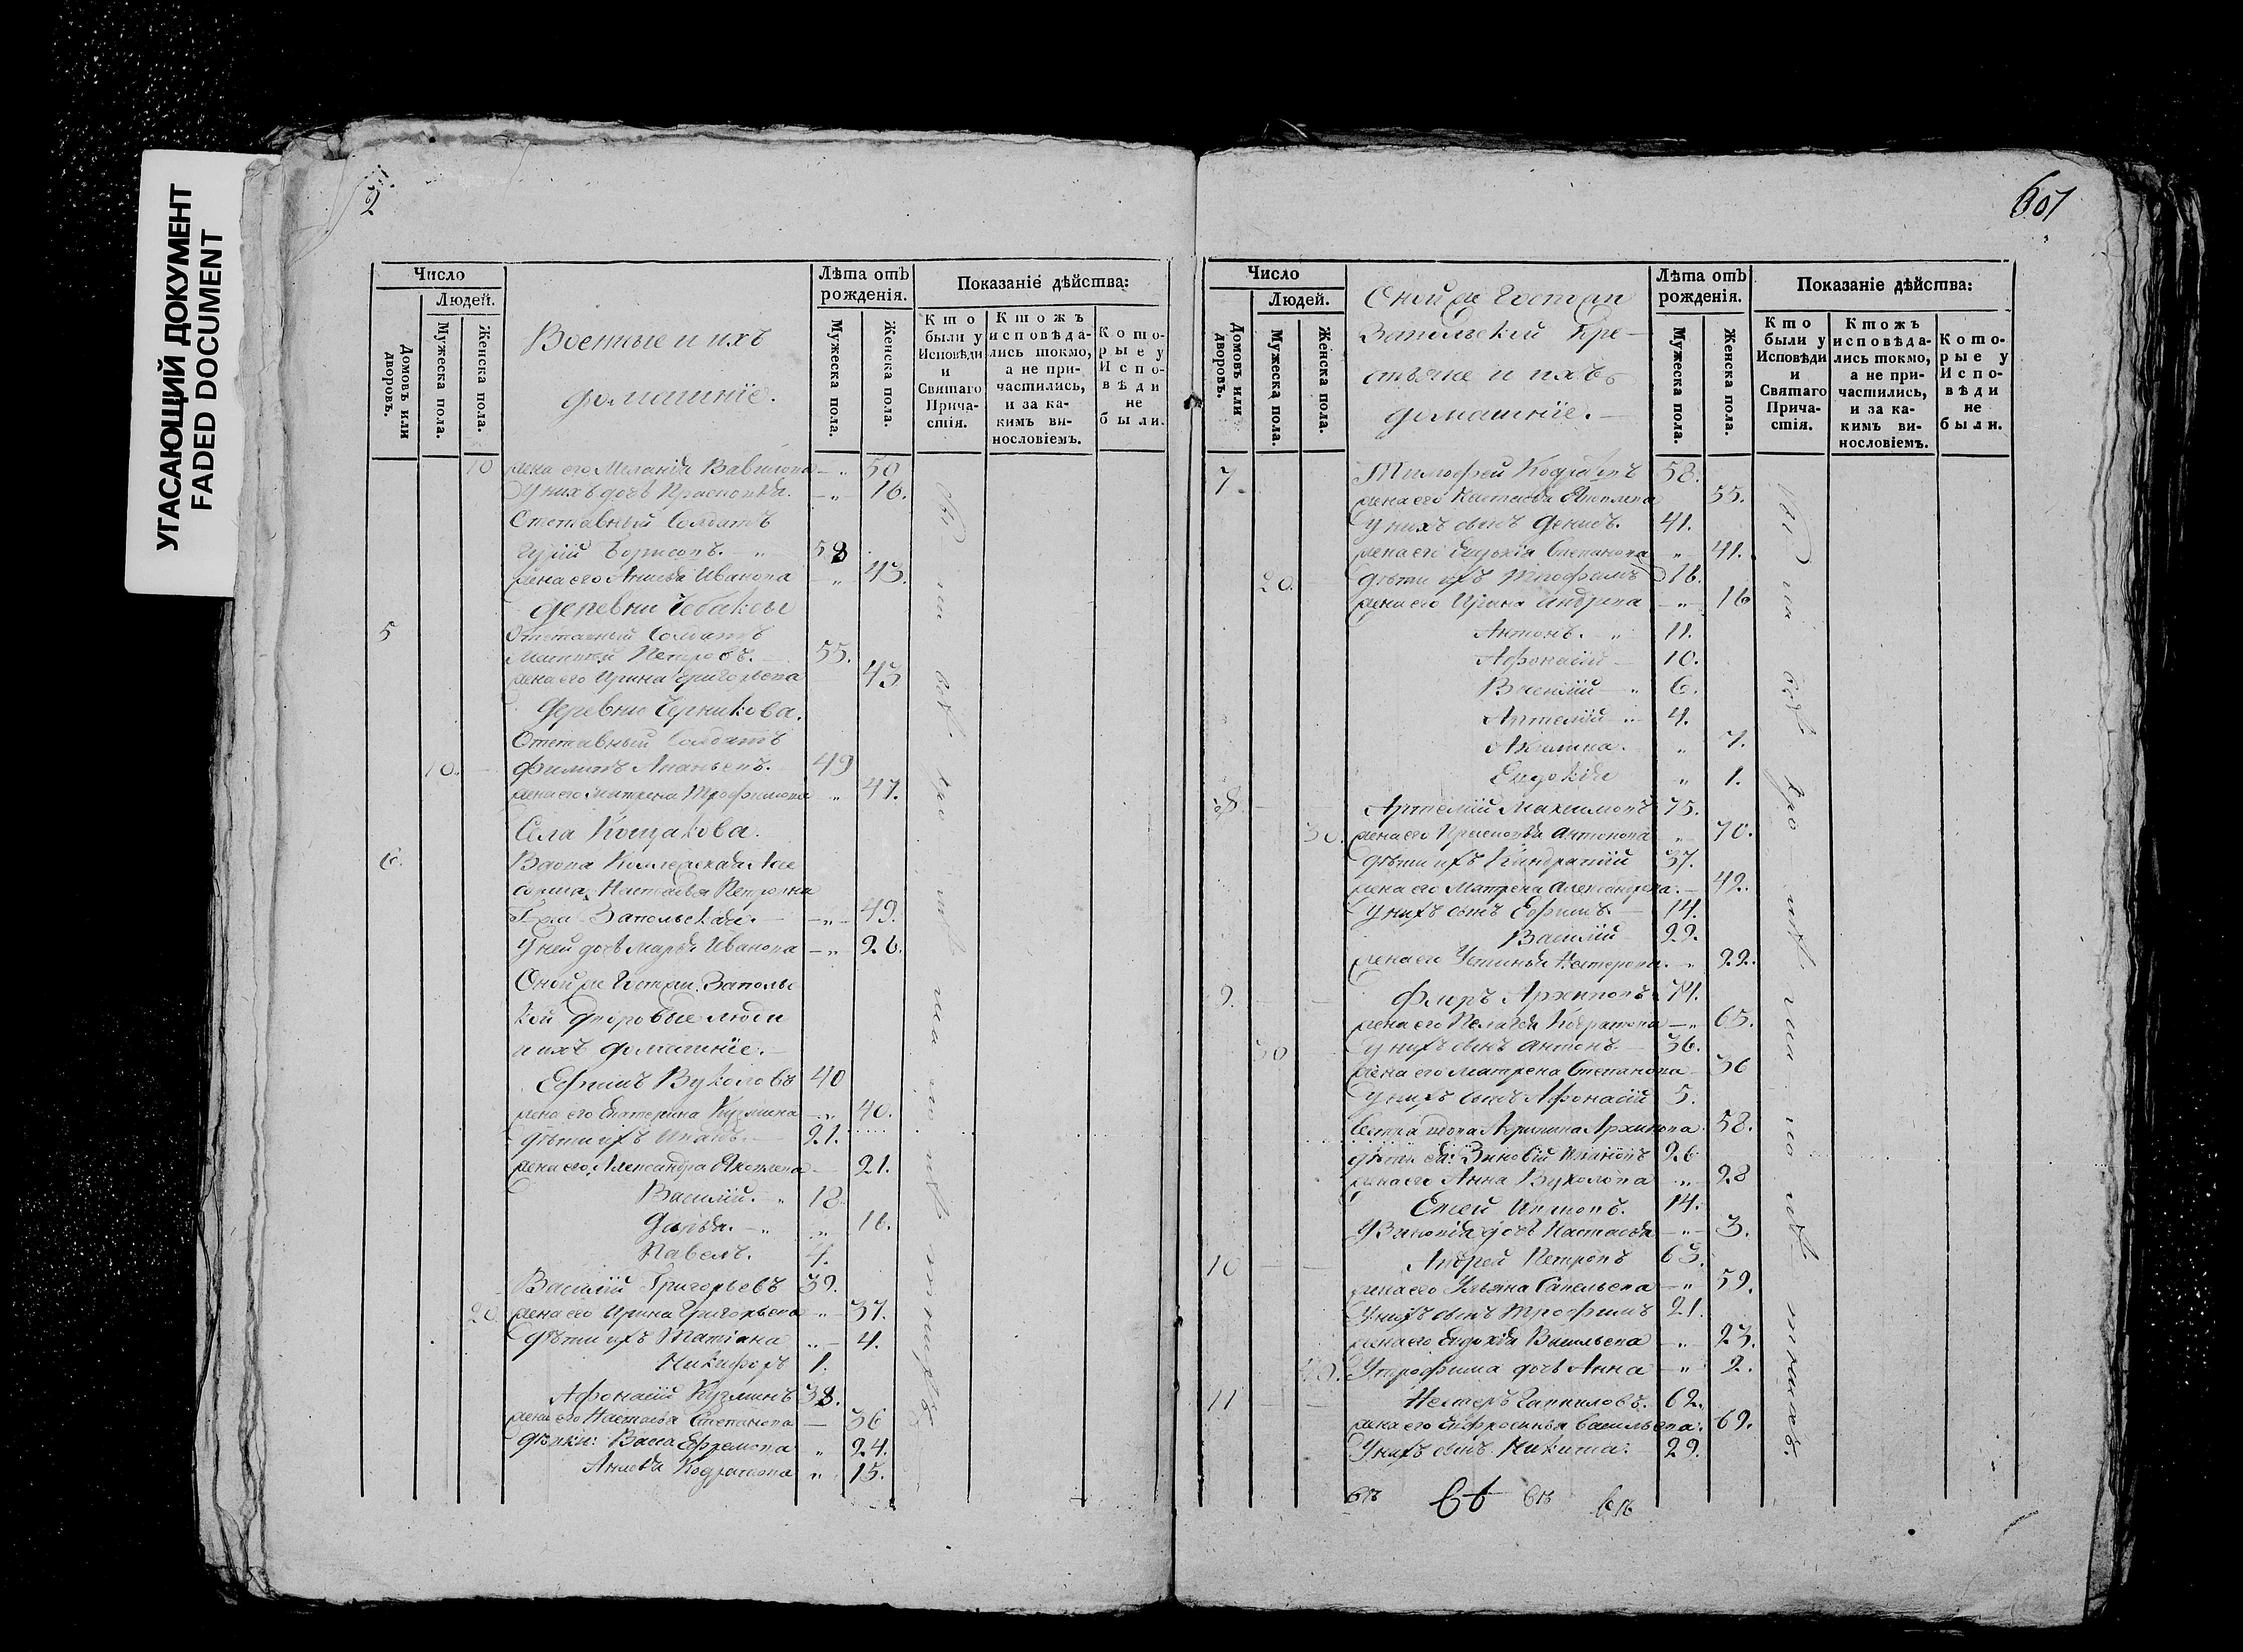 УГАСАЮЩИЙ ДОКУМЕНТ
FADED DOCUMENT
2
Число
Людей.
Домовъ или дворовъ.
Мужеска пола.
Женска пола.
Военные и ихъ
домашніе.
Лѣта отъ
рожденія.
Мужеска пола.
Женска пола.
Показаніе дѣйства:
Кто
были у
Исповѣди
и
Святаго
Прича-
стія.
Ктожъ
исповѣда-
лись токмо,
а не при-
частились,
и за ка-
кимъ ви-
нословіемъ.
Кото-
рые у
Испо-
вѣди
не
были.
10 жена его Меланія Вавилова 50
У нихъ дочь Прасковья. 16.
Отставный Солдатъ
Гурій Борисовъ. 58
жена его Анисья Иванова 43.
деревни Чебаксы
5 Отставный Солдатъ
Матвей Петровъ. 55.
жена его Ирина Григорьева 43
Деревни Черникова.
Отставный Солдатъ
10. Филипъ Ананьевъ. 49
жена его Матрена Трофимова 47.
Села Кощакова.
6. Вдова Коллежская Асе
сорша Настасья Петровна
Запольская. 49.
У ней дочь Марья Иванова 26.
Оной же Госпжи Запольс
кой дворовые люди
и ихъ домашніе.
Ефимъ Вуколовъ 40
жена его Екатерина Кузмина 40.
дѣти ихъ Иванъ. 21.
жена его Александра Яковлева 21.
Василій. 18.
Дарья. 16.
Павелъ. 4.
Василій Григорьевъ 39.
20. жена его Ирина Григорьева 37.
дѣти ихъ Татіана 4.
Никифоръ 1.
Афонасій Кузминъ 38.
жена его Настасья Степанова 36
дѣвки: Васса Ефремова 24.
Анисья Кодратова 15.
601
Число
Людей.
Домовъ или дворовъ.
Мужеска пола.
Женска пола.
Оной же Госпжи
Запольской Кре-
стьяне и ихъ
домашніе.
Лѣта отъ
рожденія.
Мужеска пола.
Женска пола.
Показаніе дѣйства:
Кто
были у
Исповѣди
и
Святаго
Прича-
стія.
Ктожъ
исповѣда-
лись токмо,
а не при-
частились,
и за ка-
кимъ ви-
нословіемъ.
Кото-
рые у
Испо-
вѣди
не
были.
7. Тимофей Кодратъ 58.
жена его Настасья Яковлева 55.
У нихъ сынъ Денисъ. 41.
жена его Евдокія Степанова 41.
20. дѣти ихъ Трофимъ 16.
жена его Ирина Андреева 16
Антонъ. 11.
Афонасій 10.
Василій 6.
Артемій 4.
Акулина. 7.
Евдокія 1.
8. Артемій Максимовъ 75.
30. жена его Прасковья Антонова 70.
дѣти ихъ Кандратій 37.
жена его Матрена Александрова. 42.
У нихъ сынъ Ефимъ. 14.
Василій 22.
жена его Устинья Нестерова. 22.
9. Флоръ Архиповъ 74.
жена его Пелагея Кодратова 65.
30 У нихъ сынъ Антонъ. 36.
жена его Матрена Степанова 36
У нихъ сынъ Афонасій 5.
Сестра вдова Архипова 58.
дѣти ея: Зиновій Ивановъ 26
жена его Анна Вуколова 28
Елсей Ивановъ. 14.
У Зиновія дочь Настасья 3.
10 Андрей Петровъ 63.
жена его Ульяна Савельева 59.
У нихъ сынъ Трофимъ 21.
жена его Евдокія Васильева 23.
40. У Трофима дочь Анна 2.
11 Нестеръ Гавриловъ. 62.
жена его Ефросинья Савельева. 69.
У нихъ сынъ Никита. 29.